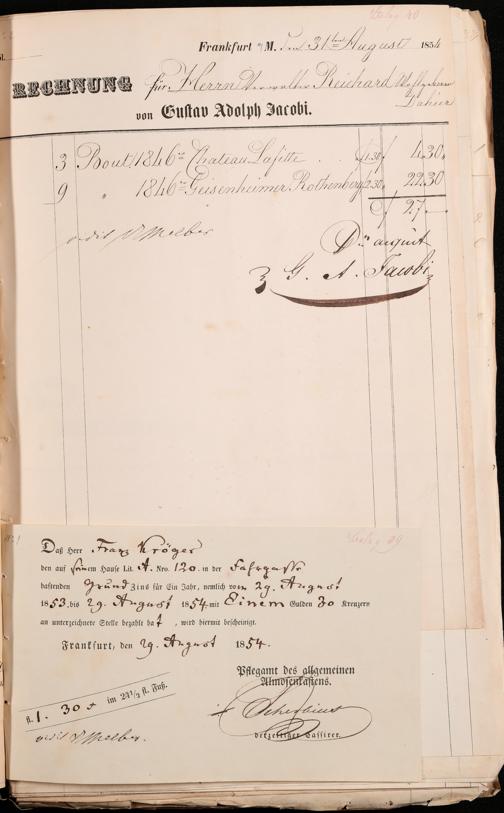 Beleg 40
Frankfurt a/M. Den 31ten August 1854
RECHNUNG für Herrn Verwalter Reichard
Dahier
von Gustav Adolph Jacobi.
3 Bout. 1846er Chateau Lafitte . . f 1.30 f 4.30.
9 " 1846er Geisenheimer Rothenberg 2.30 22.30
f 27.—
vidit Melber
Dm august
G. A. Jacobi
Beleg 39
Daß Herr Franz Kröger
den auf seinem Hause Lit. A. Nro. 120. in der Fahrgasse
haftenden Grund Zins für Ein Jahr, nemlich vom 29. August
1853. bis 29. August 1854. mit Einem Gulden 30 Kreuzern
an unterzeichnete Stelle bezahlt hat, wird hiermit bescheinigt.
Frankfurt, den 29. August 1854.
Pflegamt des allgemeinen
Almosenkastens.
fl. 1. 30 x im 24½ fl. Fuß.
vidit Melber.
derzeitiger Cassirer.